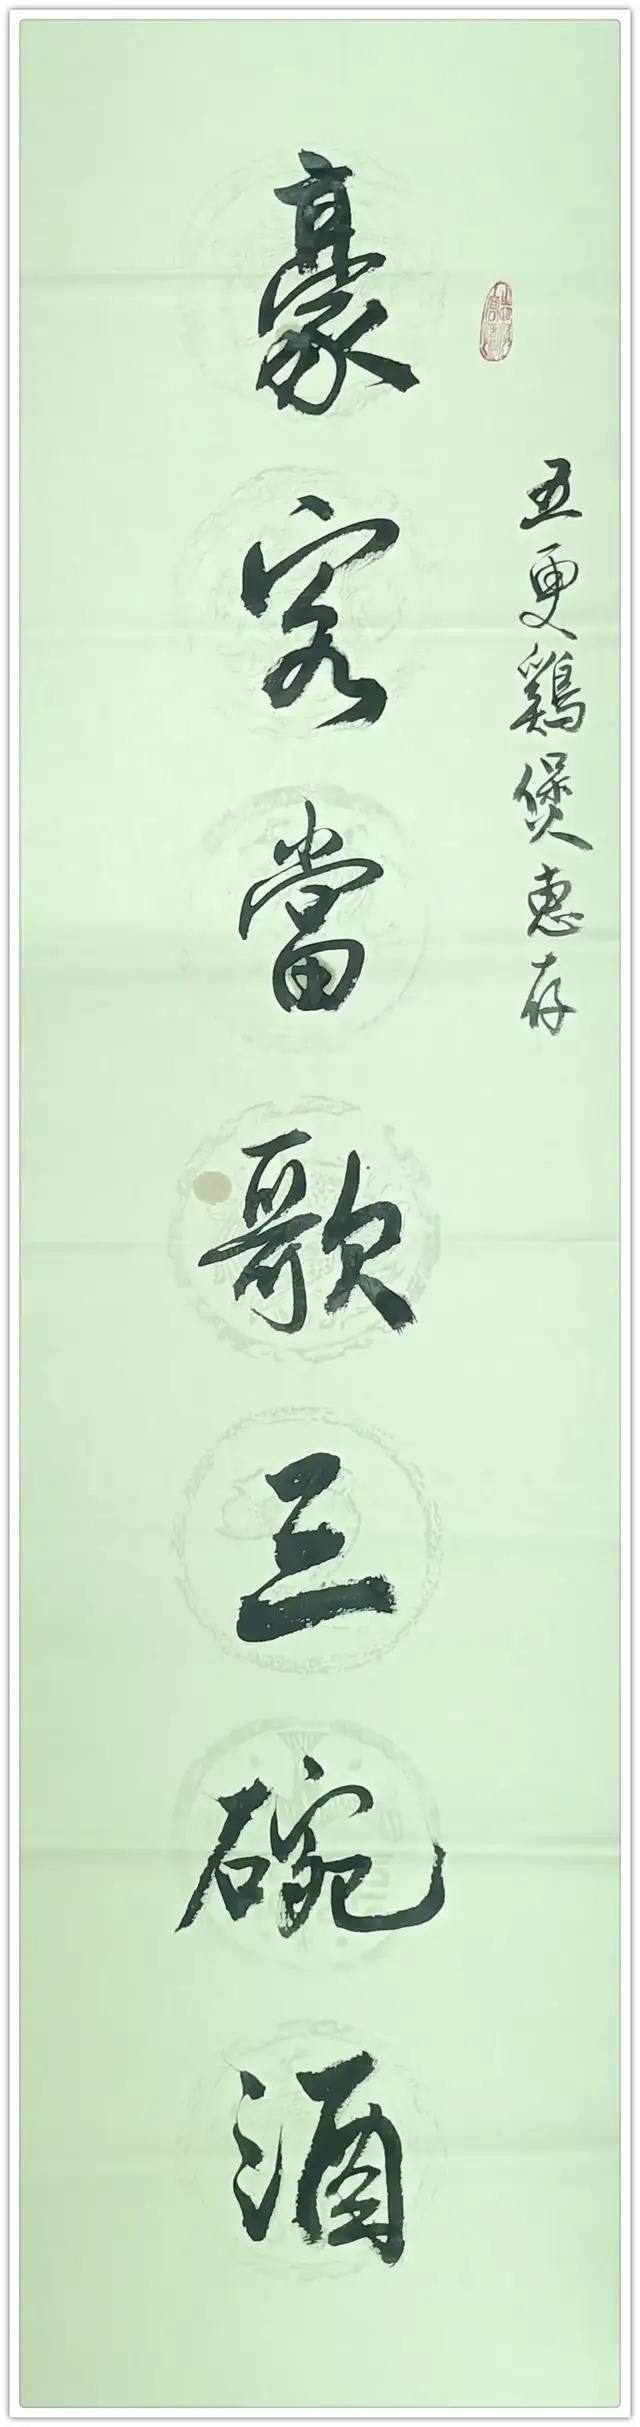 五更鷄煲惠存
豪客當歌三碗酒